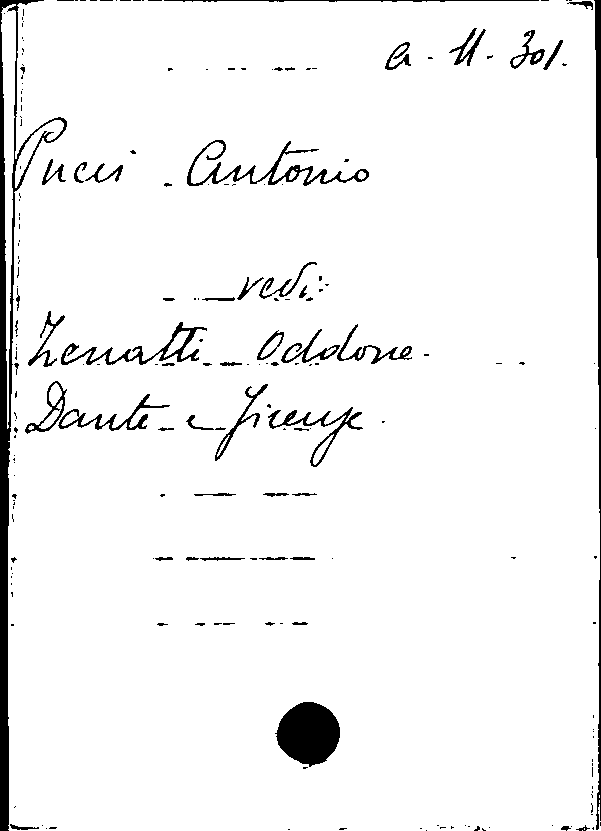 a. 11. 301.
Pucci Antonio
vedi:
Zenatti Oddone.
Dante e Firenze.